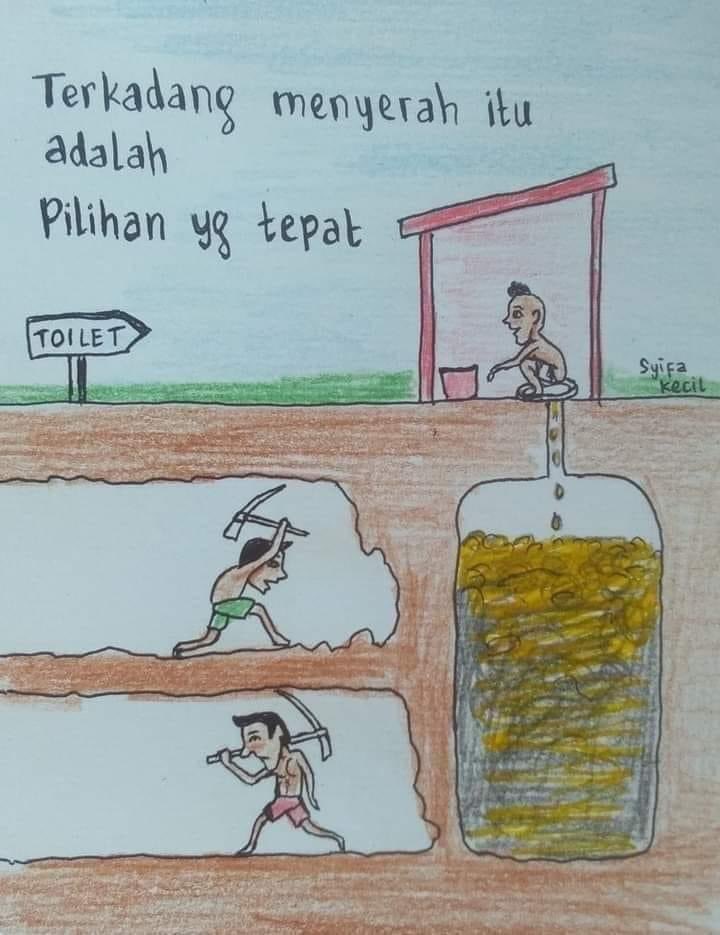 Terkadang menyerah itu
adalah
Pilihan yg tepat
TOILET
Syifa
kecil